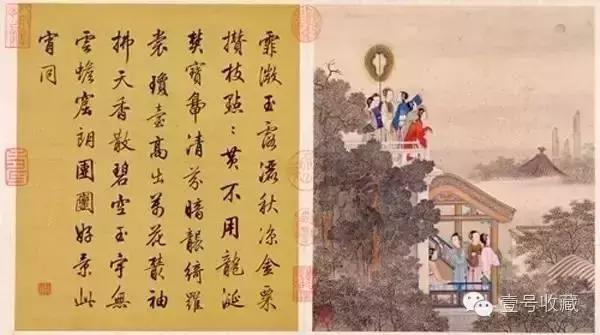 霏微玉露濕秋涼金粟
攢枝點〻黄不用龍涎
焚寶鼎清芬暗襲綺羅
裳瓊臺高出萬花叢袖
拂天香散碧空玉宇無
雲蟾窟朗團圞好景此
宵同
壹号收藏